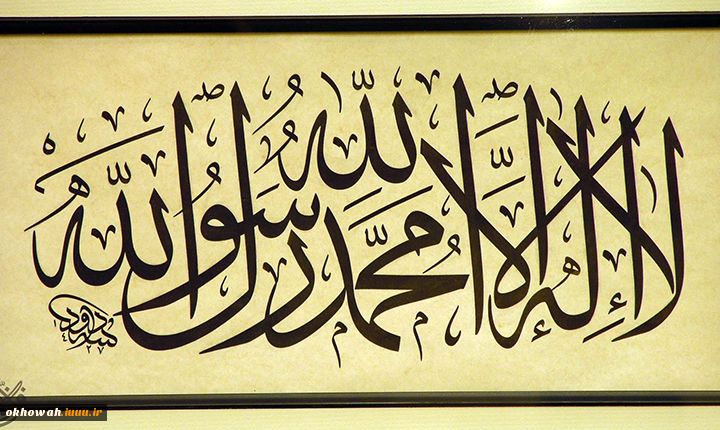 لا إله إلا الله محمد رسول الله
١٤٢٧
okhowah.iuuu.ir